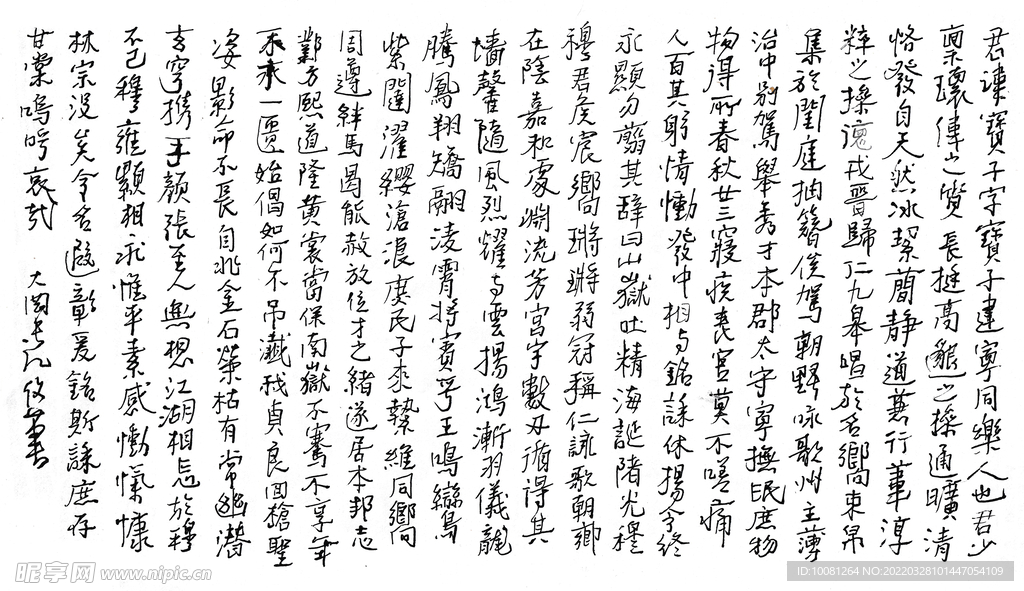 君諱寶子字寶子建寧同樂人也君少
稟瓌偉之質長挺高邈之操通曠清
恪發自天然冰絜簡静道兼行葦淳
粹之操戎晉歸仁九皋唱於名嚮束帛
集於閨庭抽簪俟駕朝野咏歌州主薄
治中别駕舉秀才本郡太守寧撫氓庶物
物得所春秋廿三寢疾喪官莫不嗟痛
人百其躬情慟發中相与銘誄休揚令終
永顯勿翦其辭曰山嶽吐精海誕陼光穆
穆君侯宸嚮鏘鏘弱冠稱仁詠歌朝鄉
在陰嘉和處淵流芳宮宇數仞循得其
墙馨隨風烈耀与雲揚鴻漸羽儀龍
騰鳳翔矯翮凌霄將賓乎王鳴鸞
紫闥濯纓滄浪庶民子來縶維同嚮
周遵絆馬曷能赦放位才之緒遂居本邦志
鄴方熙道隆黄裳當保南嶽不騫不享年
不永一匱始倡如何不吊殲我貞良回槍聖
姿影命不長自非金石榮枯有常幽潛
玄穹携手顔張至人無想江湖相忘於穆
不已穆雍顯相永惟平素感慟愾慷
林宗没矣令名遐彰爰銘斯誄庶存
甘棠嗚呼哀哉
昵享网 www.nipic.cn
ID:10081264 NO:20220328101447054109